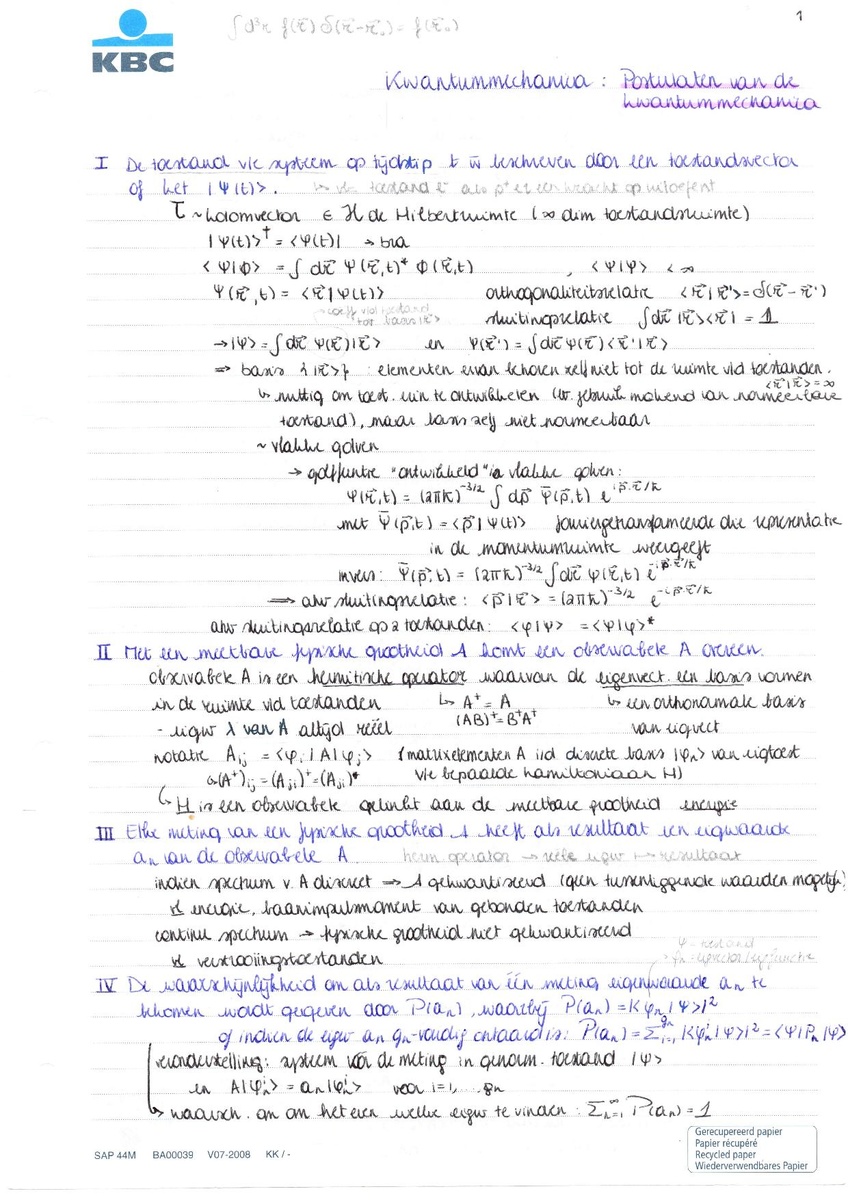 1
∫d³r f(r⃗) δ(r⃗-r⃗₀) = f(r⃗₀)
KBC
Kwantummechanica : Postulaten van de
kwantummechanica
I De toestand v/e systeem op tijdstip t w beschreven door een toestandsvector
of ket |Ψ(t)>.
~kolomvector ∈ ℋ de Hilbertruimte (∞ dim toestandsruimte)
|Ψ(t)>† = <Ψ(t)| → bra
<Ψ|Φ> = ∫dr⃗ Ψ(r⃗,t)* Φ(r⃗,t) , <Ψ|Ψ> < ∞
Ψ(r⃗,t) = <r⃗|Ψ(t)> orthogonaliteitsrelatie <r⃗|r⃗'> = δ(r⃗-r⃗')
coeff v/d toestand
tot basis |r⃗> sluitingsrelatie ∫dr⃗ |r⃗><r⃗| = 1
→|Ψ> = ∫dr⃗ Ψ(r⃗)|r⃗> en Ψ(r⃗') = ∫dr⃗ Ψ(r⃗)<r⃗'|r⃗>
⇒ basis {|r⃗>} : elementen ervan behoren zelf niet tot de ruimte v/d toestanden.
<r⃗|r⃗> = ∞
↳ nuttig om toest. erin te ontwikkelen (w. gebruik makend van normeerbare
toestand), maar basis zelf niet normeerbaar
~ vlakke golven
→ golffunctie "ontwikkeld" in vlakke golven:
Ψ(r⃗,t) = (2πħ)^-3/2 ∫dp⃗ Ψ̄(p⃗,t) e^ip⃗.r⃗/ħ
met Ψ̄(p⃗,t) = <p⃗|Ψ(t)> fouriergetransformeerde die representatie
in de momentumruimte weergeeft
invers: Ψ̄(p⃗,t) = (2πħ)^-3/2 ∫dr⃗ Ψ(r⃗,t) e^-ip⃗.r⃗/ħ
⇒ ahv sluitingsrelatie: <p⃗|r⃗> = (2πħ)^-3/2 e^-ip⃗.r⃗/ħ
ahv sluitingsrelatie op 2 toestanden: <φ|Ψ> = <Ψ|φ>*
II Met een meetbare fysische grootheid A komt een observabele A overeen.
observabele A is een hermitische operator waarvan de eigenvect. een basis vormen
in de ruimte v/d toestanden ↳ A⁺ = A ↳ een orthonormale basis
(AB)⁺ = B⁺A⁺
- eigw λ van A altijd reëel van eigvect
notatie A_ij = <φ_i|A|φ_j> (matrixelementen A i/d discrete basis |φ_n> van eigtoest
↳(A⁺)_ij = (A_ji)⁺ = (A_ji)* v/e bepaalde hamiltoniaan H)
↳ H is een observabele gelinkt aan de meetbare grootheid energie
III Elke meting van een fysische grootheid A heeft als resultaat een eigwaarde
a_n van de observabele A. herm operator → reële eigw → resultaat
indien spectrum v. A discreet ⇒ A gekwantiseerd (geen tussenliggende waarden mogelijk)
vb energie, baanimpulsmoment van gebonden toestanden
continu spectrum → fysische grootheid niet gekwantiseerd
vb verstrooiingstoestanden
Ψ = toestand
φ_n = eigvector/eigfunctie
IV De waarschijnlijkheid om als resultaat van één meting eigenwaarde a_n te
bekomen wordt gegeven door P(a_n), waarbij P(a_n) = |<φ_n|Ψ>|²
of indien de eigw a_n g_n-voudig ontaard is: P(a_n) = Σ_{i=1}^{g_n} |<φ_n^i|Ψ>|² = <Ψ|P_n|Ψ>
veronderstelling: systeem vóór de meting in genorm. toestand |Ψ>
en A|φ_n^i> = a_n|φ_n^i> voor i=1,...g_n
↳ waarsch. om om het even welke eigw te vinden : Σ_{n=1}^∞ P(a_n) = 1
SAP 44M BA00039 V07-2008 KK / -
Gerecupereerd papier
Papier récupéré
Recycled paper
Wiederverwendbares Papier